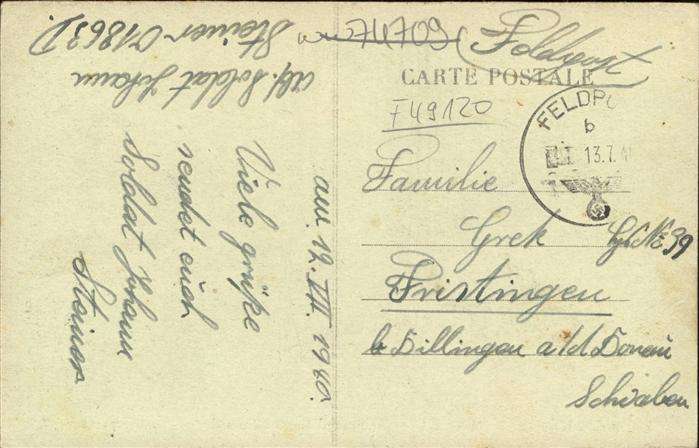 Abs. Soldat Johann
Steiner 01863 D.
am 12. VII. 1940.
Viele grüße
sendet euch
Soldat Johann
Steiner
74709
Feldpost
CARTE POSTALE
F 49120
FELDPO
b
13.7.
Familie
Grek Hs. No 39
Fristingen
b Dillingen a/d Donau
Schwaben